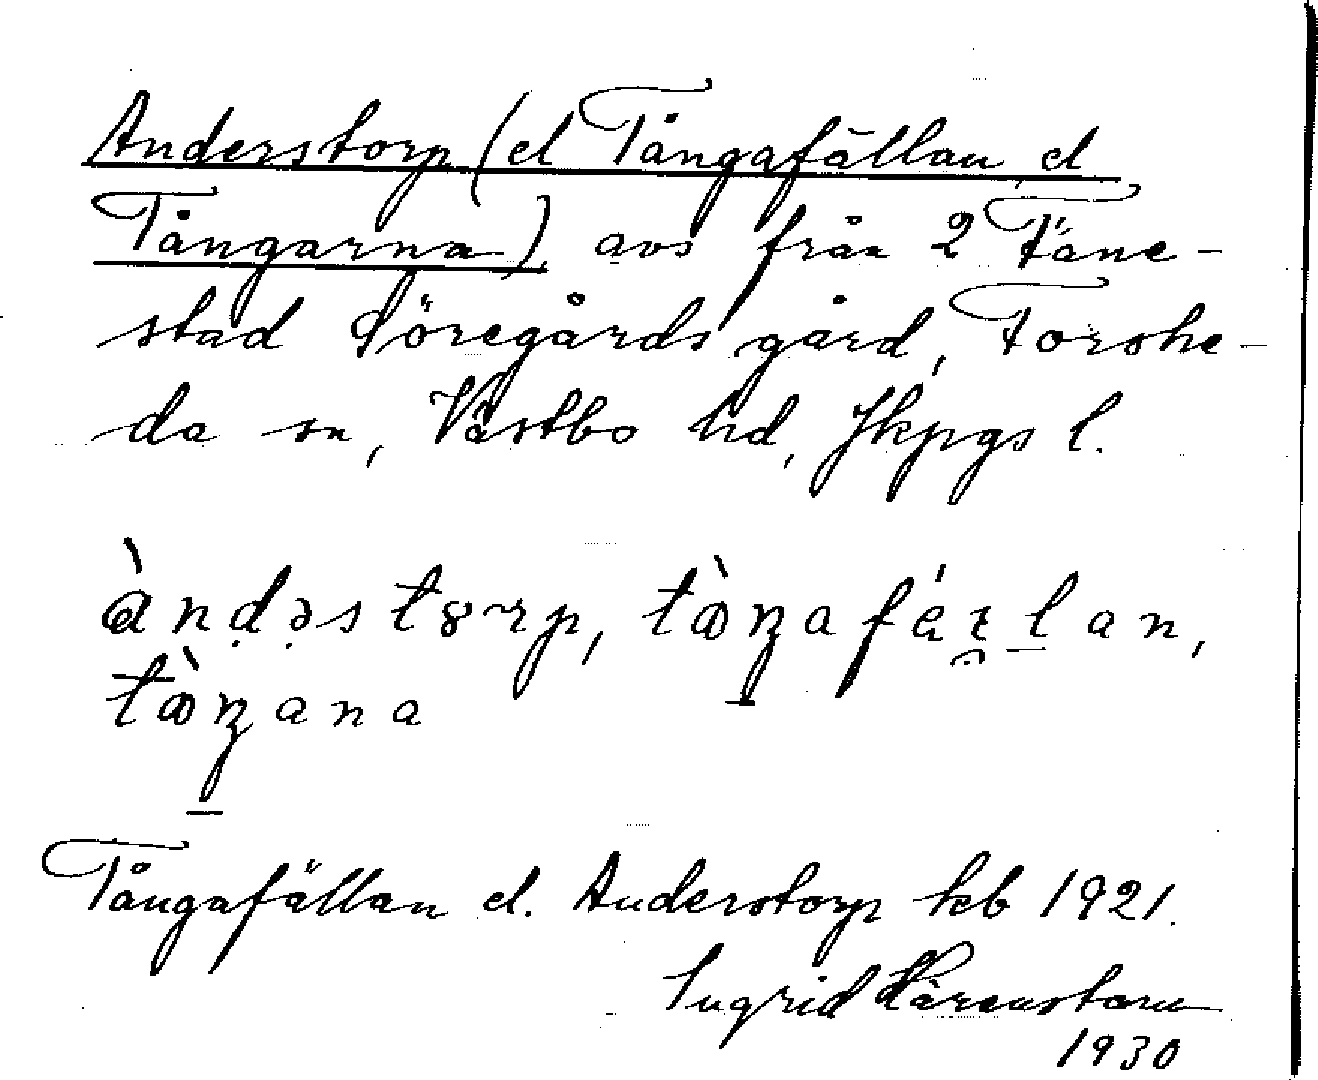 Anderstorp (el Tångafällan el
Tångarna) avs från 2 Täne-
stad Söregårds gård, Forshe-
da sn, Västbo hd, Jkpgs l.
àndəstɤrp, tàŋafáɛlan,
tàŋana
Tångafällan el. Anderstorp kb 1921.
Ingrid Härenstam
1930